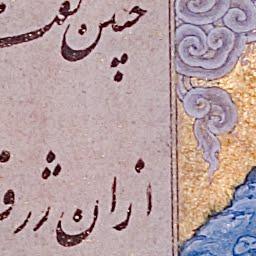 چنین گفت
ازان ژرف